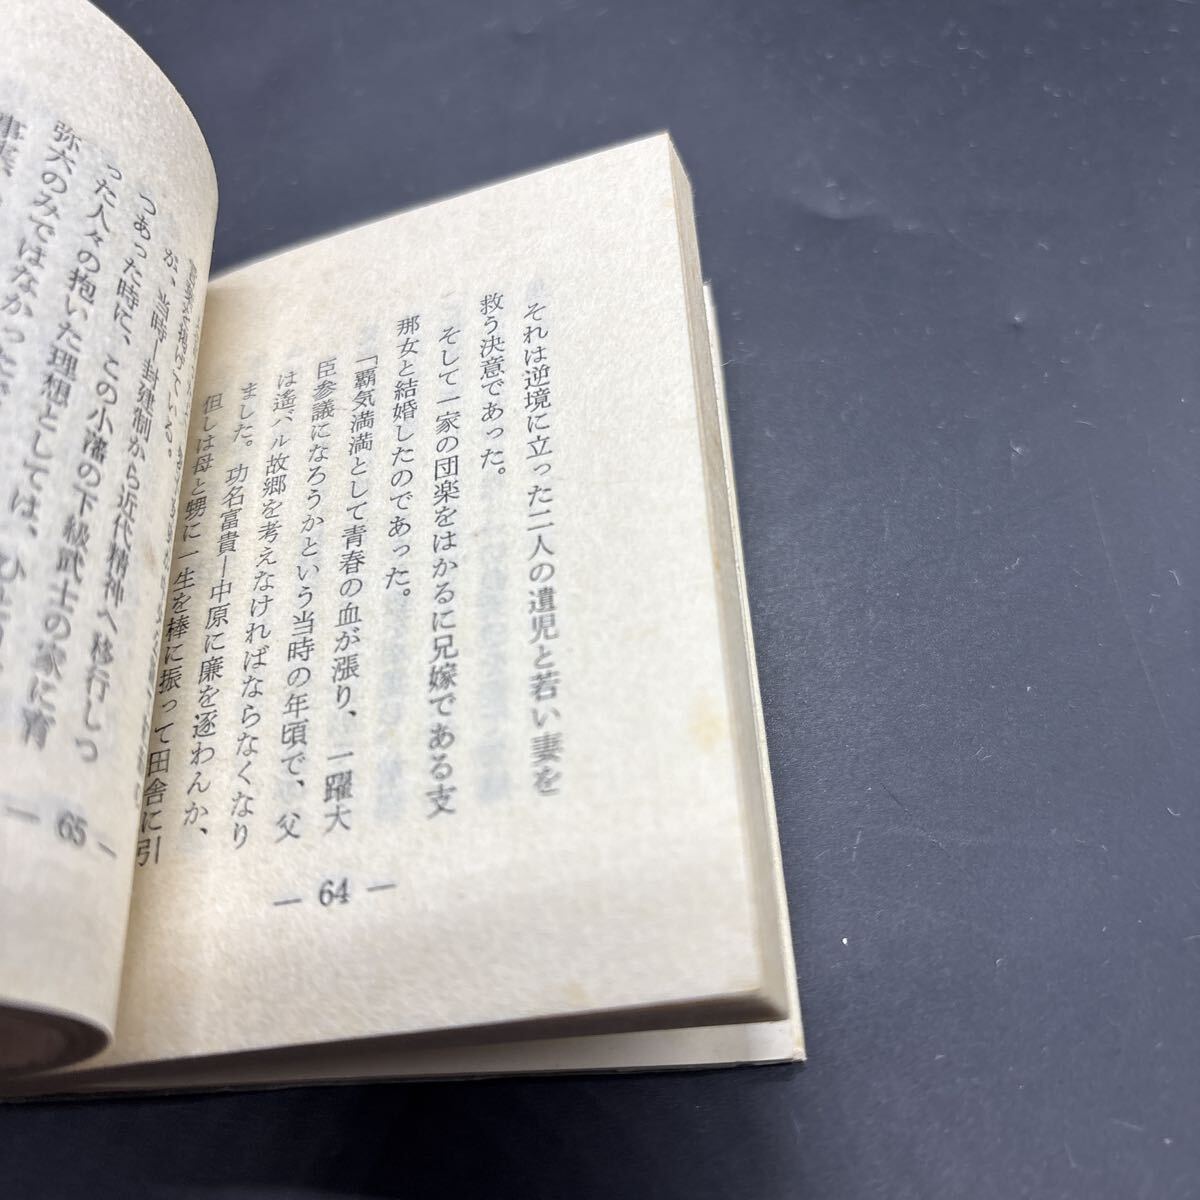 それは逆境に立った二人の遺児と若い妻を
救う決意であった。
そして一家の団楽をはかるに兄嫁である支
那女と結婚したのであった。
「覇気満満として青春の血が漲り、一躍大
臣参議になろうかという当時の年頃で、父
は遙バル故郷を考えなければならなくなり
ました。功名富貴ー中原に廉を逐わんか、
但しは母と甥に一生を棒に振って田舎に引
— 64 —
が、当時ー封建制から近代精神へ移行しつ
つあった時に、この小藩の下級武士の家に育
った人々の抱いた理想としては、ひとり
弥六のみではなかった
— 65 —